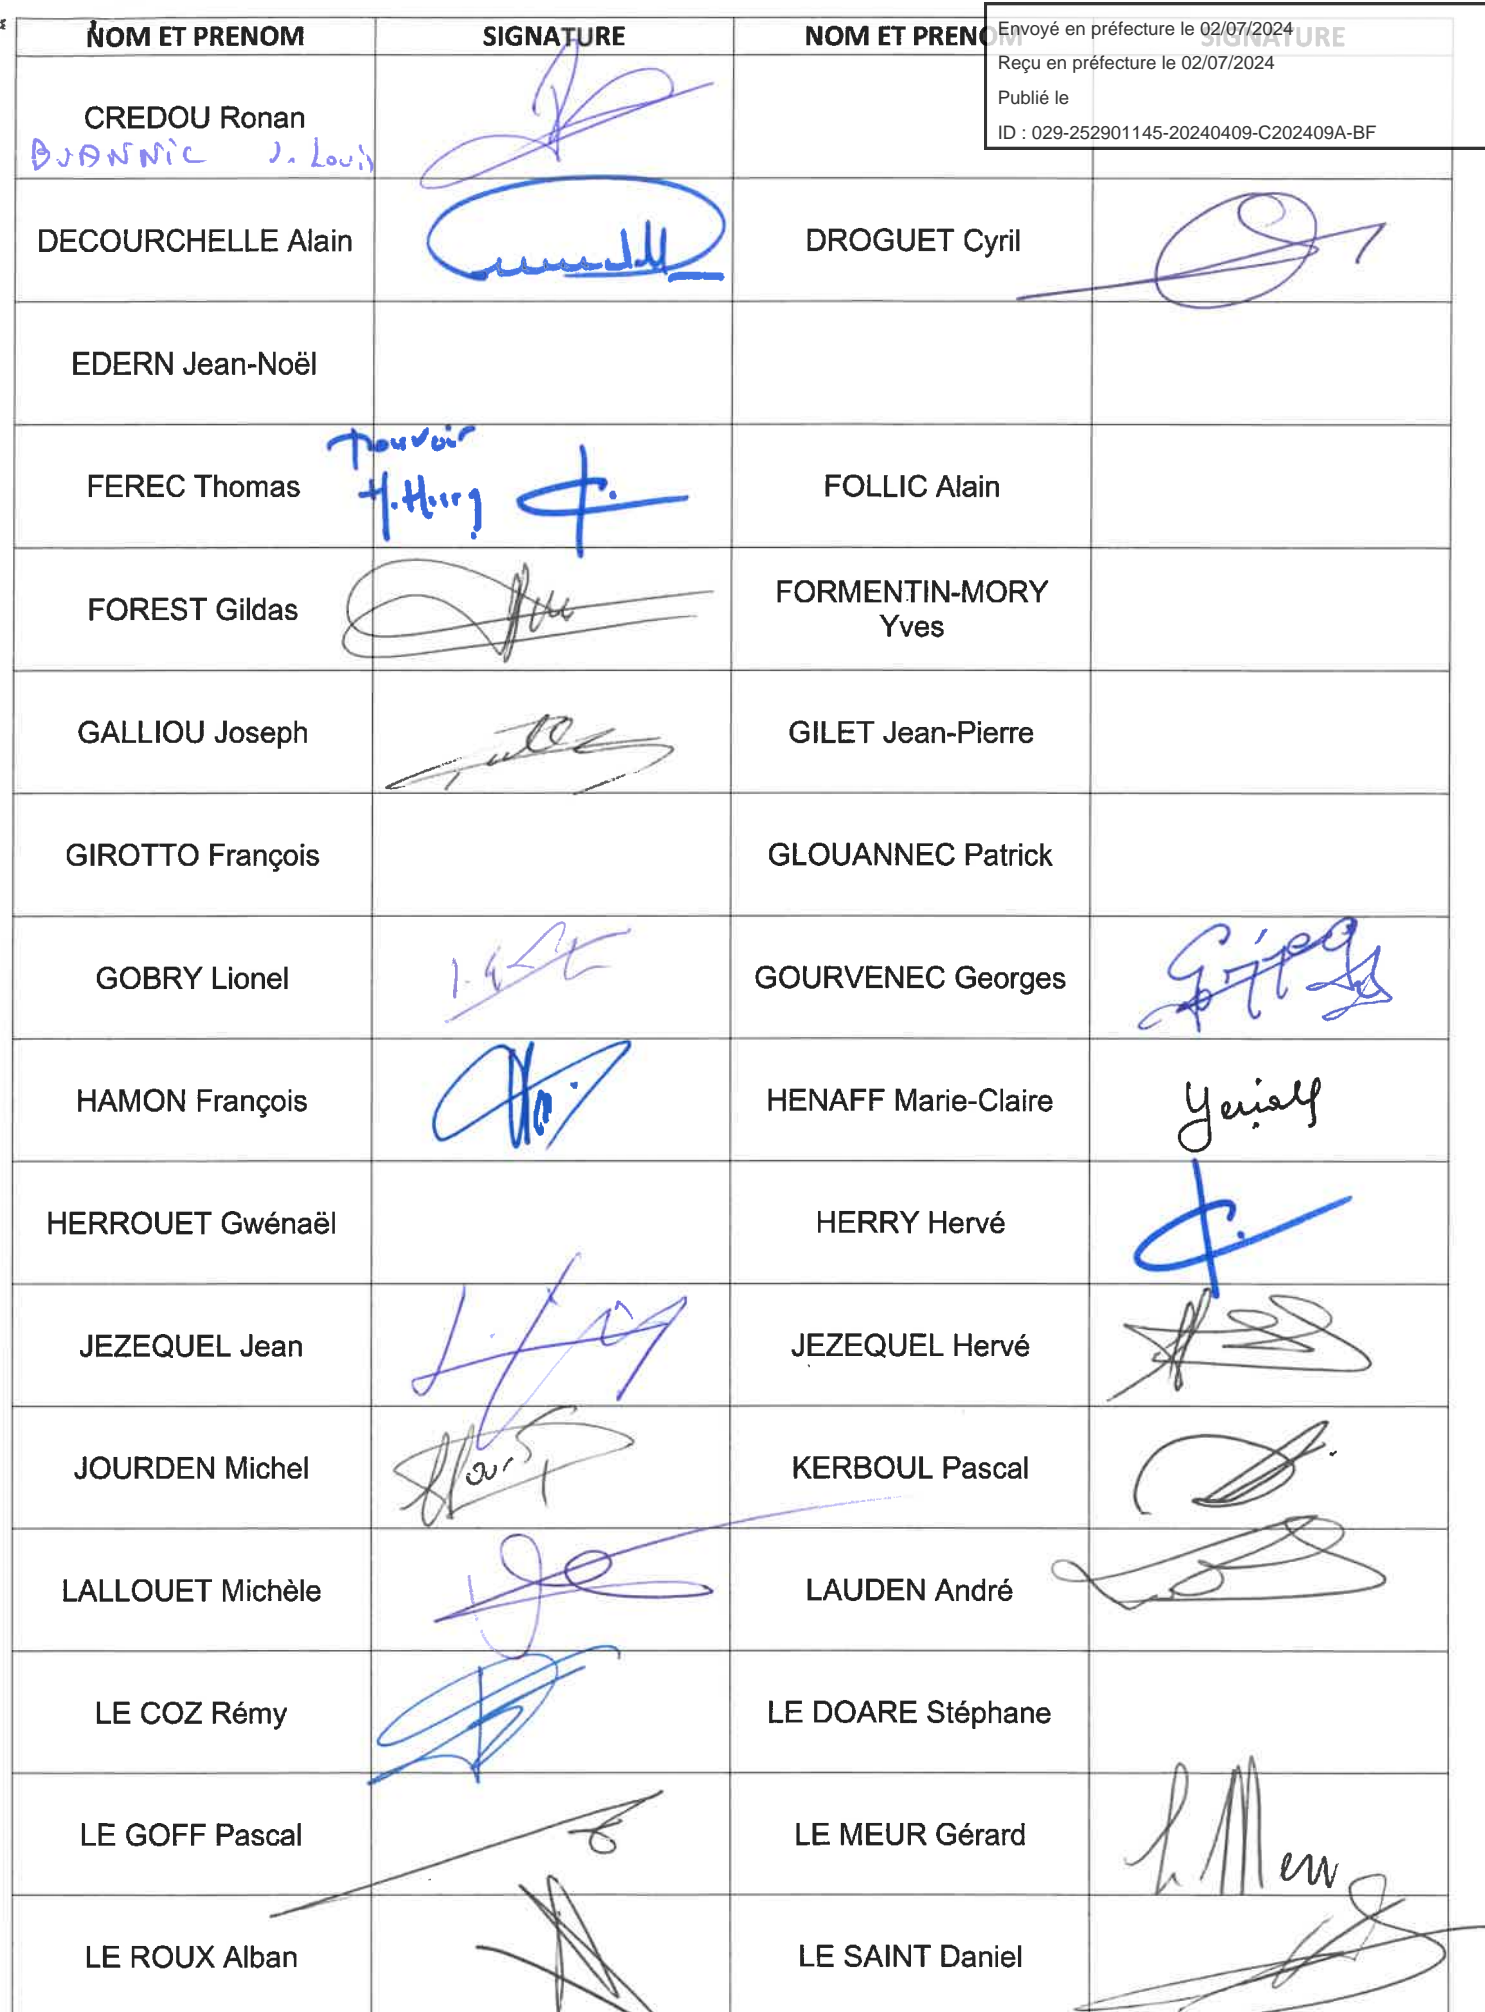 NOM ET PRENOM SIGNATURE NOM ET PRENOM SIGNATURE
Envoyé en préfecture le 02/07/2024
Reçu en préfecture le 02/07/2024
Publié le
ID : 029-252901145-20240409-C202409A-BF
CREDOU Ronan
J. Louis
DECOURCHELLE Alain DROGUET Cyril
EDERN Jean-Noël
Pouvoir
FEREC Thomas FOLLIC Alain
FOREST Gildas FORMENTIN-MORY
Yves
GALLIOU Joseph GILET Jean-Pierre
GIROTTO François GLOUANNEC Patrick
GOBRY Lionel GOURVENEC Georges
HAMON François HENAFF Marie-Claire
HERROUET Gwénaël HERRY Hervé
JEZEQUEL Jean JEZEQUEL Hervé
JOURDEN Michel KERBOUL Pascal
LALLOUET Michèle LAUDEN André
LE COZ Rémy LE DOARE Stéphane
LE GOFF Pascal LE MEUR Gérard
LE ROUX Alban LE SAINT Daniel